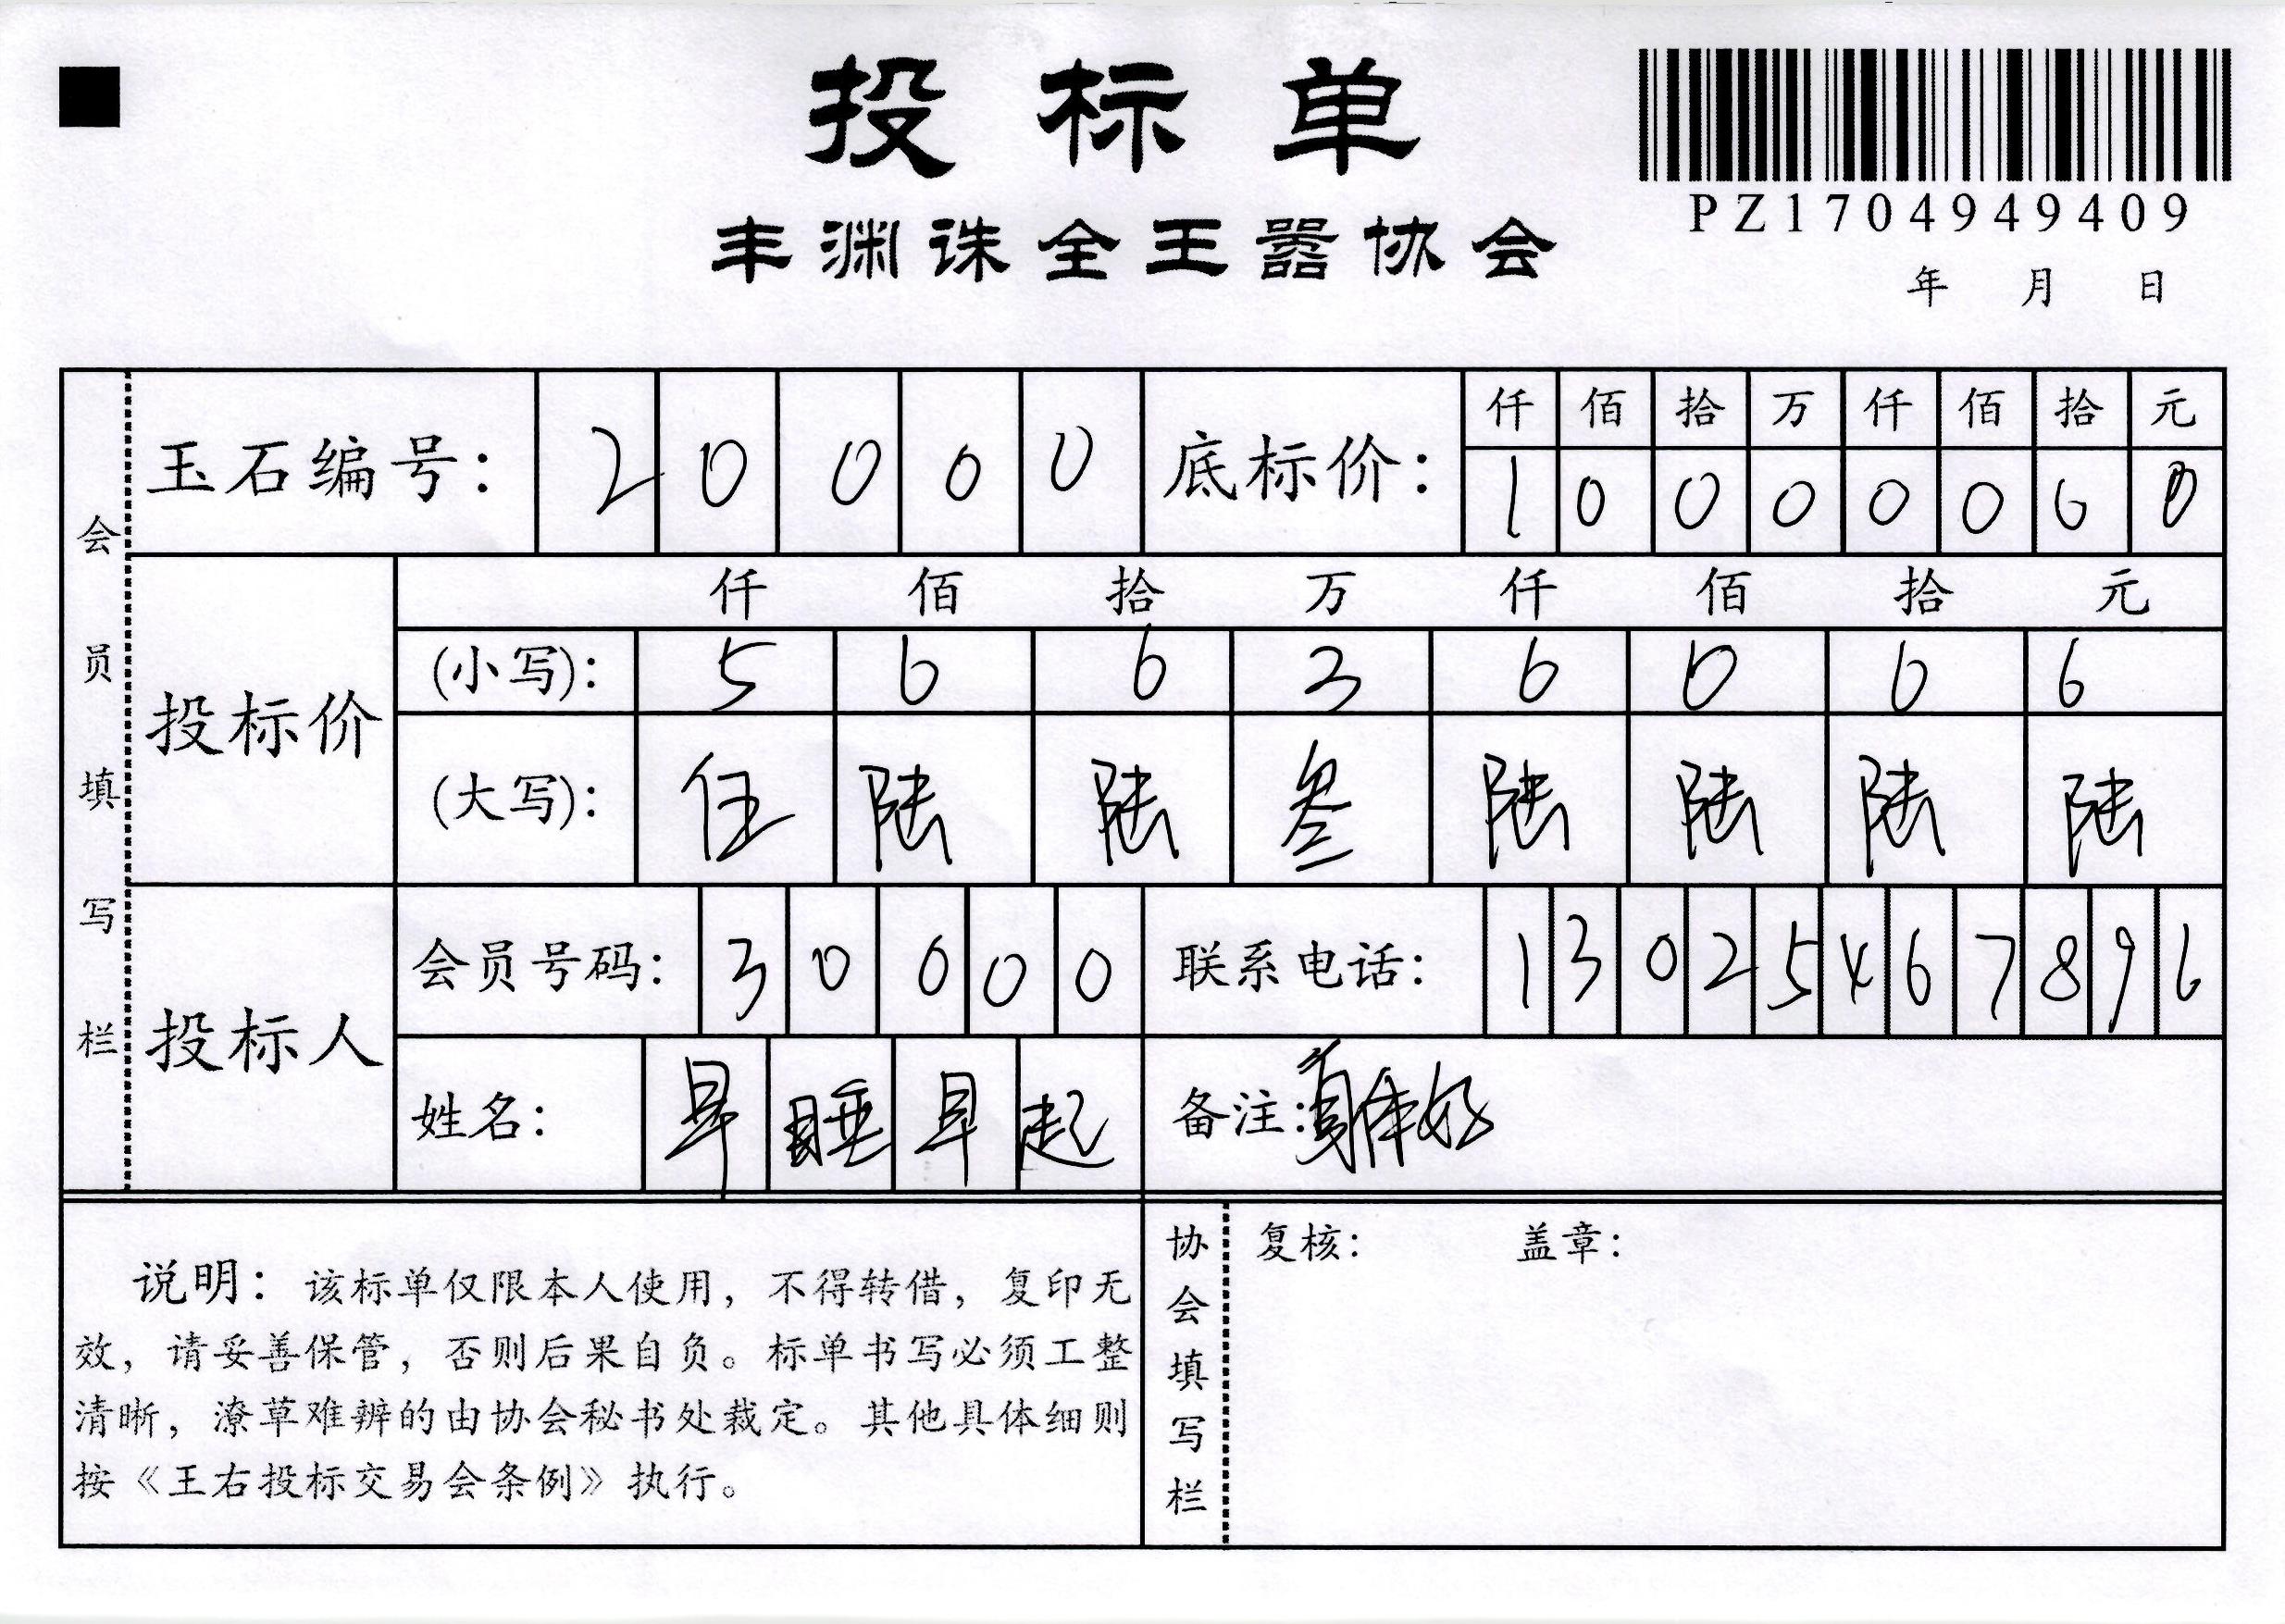 投标单
PZ1704949409
丰渊诛全王嚣协会
年 月 日
会员填写栏
玉石编号: 2 0 0 0 0
底标价: 仟 佰 拾 万 仟 佰 拾 元
1 0 0 0 0 0 6 0
投标价
仟 佰 拾 万 仟 佰 拾 元
(小写): 5 6 6 3 6 0 6 6
(大写): 伍 陆 陆 叁 陆 陆 陆 陆
投标人
会员号码: 3 0 0 0 0
联系电话: 1 3 0 2 5 4 6 7 8 9 6
姓名: 早 睡 早 起
备注: 身体好
说明: 该标单仅限本人使用, 不得转借, 复印无
效, 请妥善保管, 否则后果自负。标单书写必须工整
清晰, 潦草难辨的由协会秘书处裁定。其他具体细则
按《王右投标交易会条例》执行。
协会填写栏
复核: 盖章: